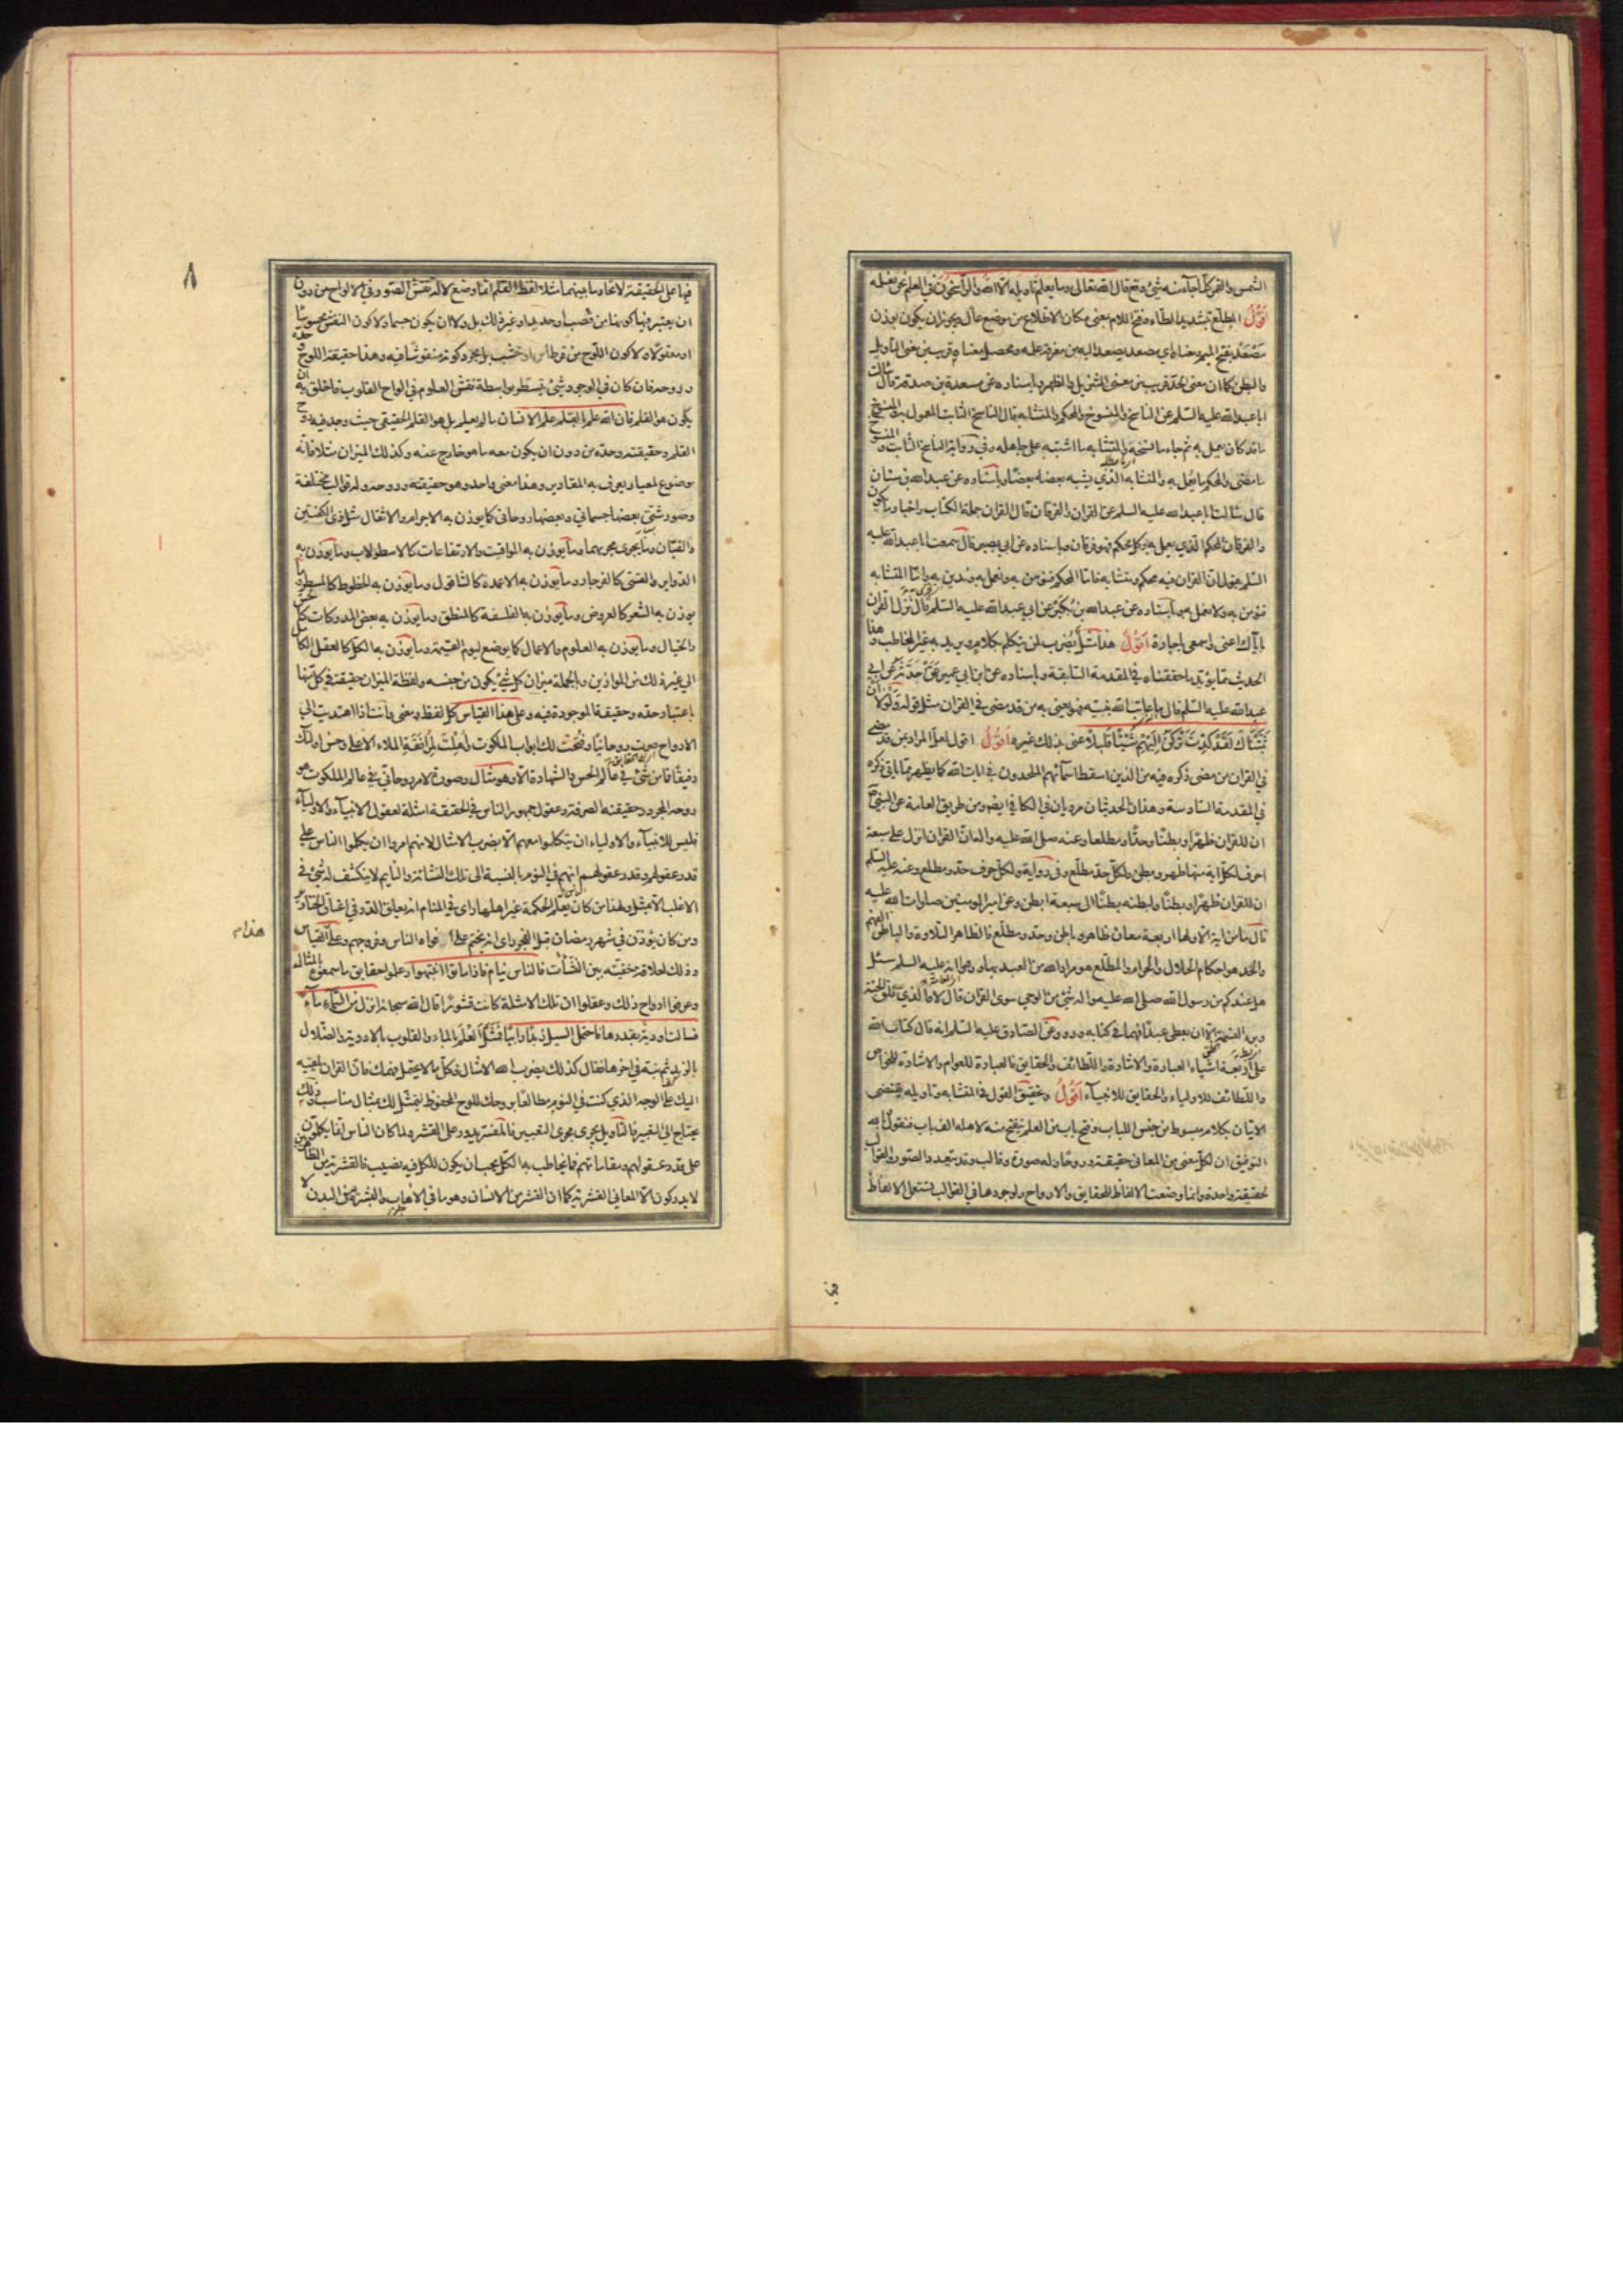 ٧
الشمس والقمر كلما جآء منه شئ وقع قال الله تعالى وما يعلم تاويله الا الله والراسخون في العلم نحن نعلمه
اَقُولُ المطلع بتشديد الطاء وفتح اللام بمعنى مكان الاطلاع من موضع عال ويجوز ان يكون بوزن
مَصْعَد بفتح الميم ومعناه اي مصعد يصعد اليه من معرفة علمه ومحصل معناه قريب من معنى التاويل
والبطن كما ان معنى الحد قريب من معنى التنزيل والظهر وباسناده عن مسعدة بن صدقة قال سالت
ابا عبد الله عليه السلم عن الناسخ والمنسوخ والمحكم والمتشابه قال الناسخ الثابت المعمول به والمنسوخ
ما قد كان يعمل به ثم جاء ما نسخه والمتشابه ما اشتبه على جاهله وفي رواية الناسخ الثابت والمنسوخ
ما مضى والمحكم ما يعمل به والمتشابه الذي يشبه بعضه بعضًا وباسناده عن عبد الله بن سنان
قال سالت ابا عبد الله عليه السلم عن القران والفرقان قال القران جملة الكتاب واخبار ما يكون
والفرقان المحكم الذي يعمل به وكل محكم فهو فرقان وباسناده عن ابي بصير قال سمعت ابا عبد الله عليه
السلم يقول ان القران فيه محكم ومتشابه فاما المحكم فنؤمن به ونعمل به وندين به واما المتشابه
فنؤمن به ولا نعمل به وباسناده عن عبد الله بن بُكَير عن ابي عبد الله عليه السلم قال نَزَل القران
باياك اعنى واسمعى يا جارة اَقُولُ هذا مَثَل يُضرب لمن يتكلم بكلام ويريد به غير المخاطب وهذا
الحديث مما يؤيد ما حققناه في المقدمة السابقة وباسناده عن ابن ابي عمير عمَّن حَدَّثه عن ابي
عبد الله عليه السلم قال ما عاتب الله نبيه فهو يعنى به من قد مضى في القران مثل قوله وَلَوْلَا اَنْ
ثَبَّتْنَاكَ لَقَدْ كِدْتَ تَرْكَنُ اِلَيْهِمْ شَيْئًا قَلِيلًا عنى بذلك غيره اَقُولُ اقول لعل المراد بمن قد مضى
في القران من مضى ذكره فيه من الذين اسقط اسمآئهم الملحدون في ايات الله كما يظهر مما ياتي ذكره
في المقدمة السادسة وهذان الحديثان مرويان في الكافي ايضو ومن طريق العامة عن النبي ص
ان للقران ظهرًا وبطنًا وحدًا ومطلعا وعنه صلى الله عليه واله ان القران انزل على سبعة
احرف لكل اية منها ظهر وبطن ولكل حد مطلع وفي رواية ولكل حرف حد ومطلع وعنه عليه السلم
ان للقران ظهرًا وبطنًا ولبطنه بطنًا الى سبعة ابطن وعن امير المومنين صلوات الله عليه
قال ما من اية الا ولها اربعة معان ظاهر وباطن وحد ومطلع فالظاهر التلاوة والباطن الفهم
والحد هو احكام الحلال والحرام والمطلع هو مراد الله من العبد بها وروى انه عليه السلم سئل
هل عندكم من رسول الله صلى الله عليه واله شئ من الوحي سوى القران قال لا والذي فلق الحبة
وبرء النسمة الا ان يعطى عبدًا فهما في كتابه وروى عن الصادق عليه السلم انه قال كتاب الله
على اربعة اشياء العبارة والاشارة واللطائف والحقايق فالعبارة للعوام والاشارة للخواص
واللطائف للاولياء والحقايق للانبيآء اَقُولُ وتحقيق القول في المتشابه وتاويله يقتضى
الاتيان بكلام مبسوط من جنس اللباب وفتح باب من العلم ينفتح منه لاهله الف باب فنقول وبالله
التوفيق ان لكل معنى من المعانى حقيقة وروحًا وله صورة وقالب وقد يتعدد الصور والقوالب
لحقيقة واحدة وانما وضعت الالفاظ للحقايق والارواح ولوجودها في القوالب تستعمل الالفاظ
٨
فيها على الحقيقة لاتحاد ما بينهما مثلا لفظ القلم انما وضع لالة نقش الصور في الالواح من دون
ان يعتبر فيها كونها من قصب او حديد او غير ذلك بل ولا ان يكون جسما ولا كون النقش محسوسًا
او معقولا ولا كون اللوح من قرطاس او خشب بل مجرد كونه منقوشًا فيه وهذا حقيقة اللوح وحده
وروحه فان كان في الوجود شئ يتسطر بواسطة نقش العلوم في الواح القلوب فاخلق به ان
يكون هو القلم فان الله علم بالقلم علم الانسان ما لم يعلم بل هو القلم الحقيقى حيث وجد فيه روح
القلم وحقيقته وحده من دون ان يكون معه ما هو خارج عنه وكذلك الميزان مثلا فانه
موضوع لمعيار يعرف به المقادير وهذا معنى واحد وهو حقيقته وروحه وله قوالب مختلفة
وصور شتى بعضها جسمانى وبعضها روحانى كما يوزن به الاجرام والاثقال مثل ذى الكفتين
والقبّان وما يجرى مجريهما وما يوزن به المواقيت والارتفاعات كالاسطرلاب وما يوزن به
الدواير والقسى كالفرجار وما يوزن به الاعمدة كالشاقول وما يوزن به الخطوط كالمسطر وما
يوزن به الشعر كالعروض وما يوزن به الفلسفة كالمنطق وما يوزن به بعض المدركات كالحس
والخيال وما يوزن به العلوم والاعمال كما يوضع ليوم القيمة وما يوزن به الكل كالعقل الكامل
الى غير ذلك من الموازين وبالجملة ميزان كل شئ يكون من جنسه ولفظة الميزان حقيقة في كل منها
باعتبار حده وحقيقة الموجودة فيه وعلى هذا القياس كل لفظ ومعنى وانت اذا اهتديت الى
الارواح صرت روحانيا وفُتحت لك ابواب الملكوت واُهِّلْتَ لِمُرافَقَةِ الملاء الاعلى وحسن اولئك
رفيقًا فما من شئ في عالم الحس والشهادة الا وهو مثال وصورة لامر روحانى في عالم الملكوت هو
روحه المجرد وحقيقته الصرفة وعقول جمهور الناس في الحقيقة امثلة لعقول الانبيآء والاوليآء
فليس للانبيآء والاولياء ان يتكلموا معهم الا بضرب الامثال لانهم امروا ان يكلموا الناس على
قدر عقولهم وقدر عقولهم انهم في النوم بالنسبة الى تلك النشائة والنايم لا ينكشف له شئ في
الاغلب الا بمثل ولهذا من كان يعلم الحكمة غير اهلها راى في المنام انه يعلق الدر في اعناق الخنازير
ومن كان يؤذن في شهر رمضان قبل الفجر راى انه يختم على افواه الناس وفروجهم وعلى هذا القياس
هذا م
وذلك لعلاقة خفية بين النشأت فالناس نيام فاذا ماتوا انتبهوا وعلموا حقايق ما سمعوه بالمثال
وعرفوا ارواح ذلك وعقلوا ان تلك الامثلة كانت قشورًا قال الله سبحانه انزل من السمآء مآء
فسالت اودية بقدرها فاحتمل السيل زبدًا رابيًا فَمَثَّلَ العلم بالماء والقلوب بالاودية والضلال
بالزبد ثم نبه في اخرها فقال كذلك يضرب الله الامثال فكل ما لا يحتمل فهمك فان القران يلقيه
اليك على الوجه الذي كنت في النوم مطالعًا بروحك للوح المحفوظ ليتمثل لك بمثال مناسب وذلك
يحتاج الى التعبير فالتاويل يجرى مجرى التعبير فالمفسر يدور على القشر ولما كان الناس انما يكلمون
على قدر عقولهم ومقاماتهم فما يخاطب به الكل يجب ان يكون للكل فيه نصيب فالقشرية من الظاهريين
لا يدركون الا المعانى القشرية كما ان القشر من الانسان وهو ما في الاهاب والبشرة من البدن لا